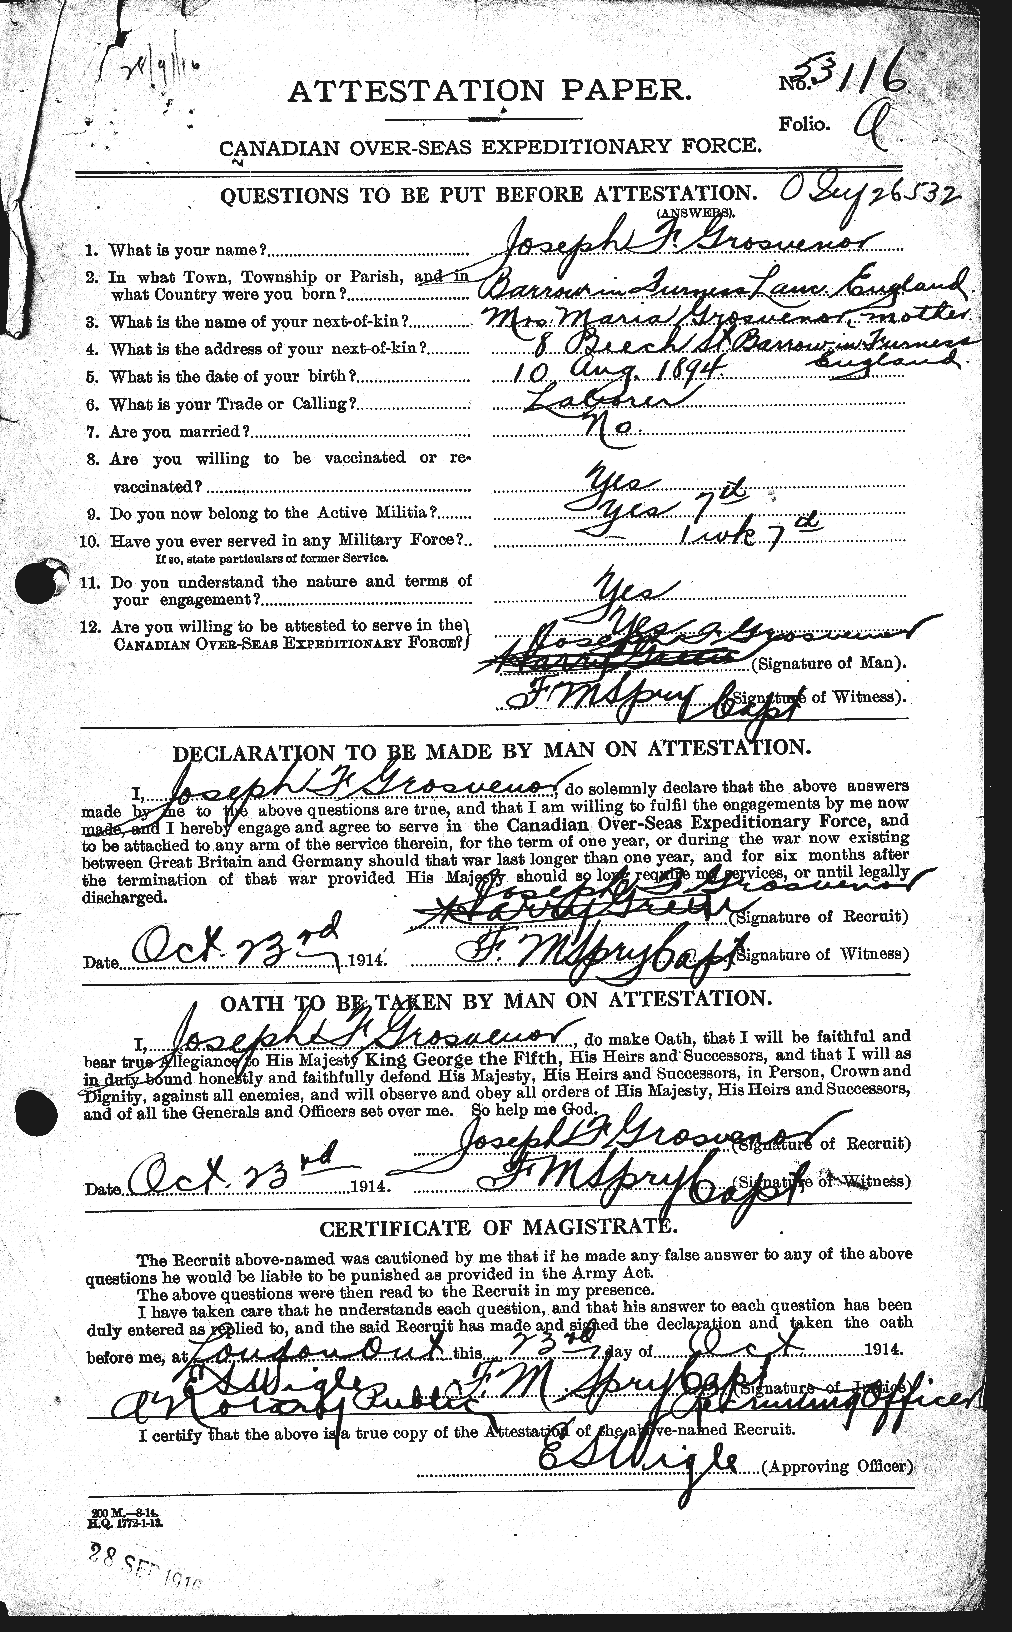 28/9/16
ATTESTATION PAPER.
No. 53116
Folio. A
CANADIAN OVER-SEAS EXPEDITIONARY FORCE.
QUESTIONS TO BE PUT BEFORE ATTESTATION.
26532
(ANSWERS).
1. What is your name? Joseph F. Grosvenor
2. In what Town, Township or Parish, and in
what Country were you born? Barrow in Furness Lanc. England
3. What is the name of your next-of-kin? Mrs. Maria Grosvenor, mother
4. What is the address of your next-of-kin? 8 Beech St. Barrow in Furness
England
5. What is the date of your birth? 10 Aug. 1894
6. What is your Trade or Calling? Laborer
7. Are you married? No.
8. Are you willing to be vaccinated or re-
vaccinated? Yes
9. Do you now belong to the Active Militia? Yes 7th
10. Have you ever served in any Military Force? 1 wk 7th
If so, state particulars of former Service.
11. Do you understand the nature and terms of
your engagement? Yes
12. Are you willing to be attested to serve in the
CANADIAN OVER-SEAS EXPEDITIONARY FORCE? Yes
Joseph F. Grosvenor
Harry (Signature of Man).
F M Spry Capt (Signature of Witness).
DECLARATION TO BE MADE BY MAN ON ATTESTATION.
I, Joseph F Grosvenor, do solemnly declare that the above answers
made by me to the above questions are true, and that I am willing to fulfil the engagements by me now
made, and I hereby engage and agree to serve in the Canadian Over-Seas Expeditionary Force, and
to be attached to any arm of the service therein, for the term of one year, or during the war now existing
between Great Britain and Germany should that war last longer than one year, and for six months after
the termination of that war provided His Majesty should so long require my services, or until legally
discharged.
Joseph F Grosvenor
Harry (Signature of Recruit)
Date Oct. 23rd 1914. F. M Spry Capt (Signature of Witness)
OATH TO BE TAKEN BY MAN ON ATTESTATION.
I, Joseph F Grosvenor, do make Oath, that I will be faithful and
bear true Allegiance to His Majesty King George the Fifth, His Heirs and Successors, and that I will as
in duty bound honestly and faithfully defend His Majesty, His Heirs and Successors, in Person, Crown and
Dignity, against all enemies, and will observe and obey all orders of His Majesty, His Heirs and Successors,
and of all the Generals and Officers set over me. So help me God.
Joseph F Grosvenor (Signature of Recruit)
Date Oct. 23rd 1914. F M Spry Capt (Signature of Witness)
CERTIFICATE OF MAGISTRATE.
The Recruit above-named was cautioned by me that if he made any false answer to any of the above
questions he would be liable to be punished as provided in the Army Act.
The above questions were then read to the Recruit in my presence.
I have taken care that he understands each question, and that his answer to each question has been
duly entered as replied to, and the said Recruit has made and signed the declaration and taken the oath
before me, at London Ont this 23rd day of Oct 1914.
E S Wigle F M Spry Capt (Signature of Justice)
A Notary Public Recruiting Officer
I certify that the above is a true copy of the Attestation of the above-named Recruit.
E S Wigle (Approving Officer)
200 M.—8-14.
H.Q. 1772-1-13.
28 SEP 1916